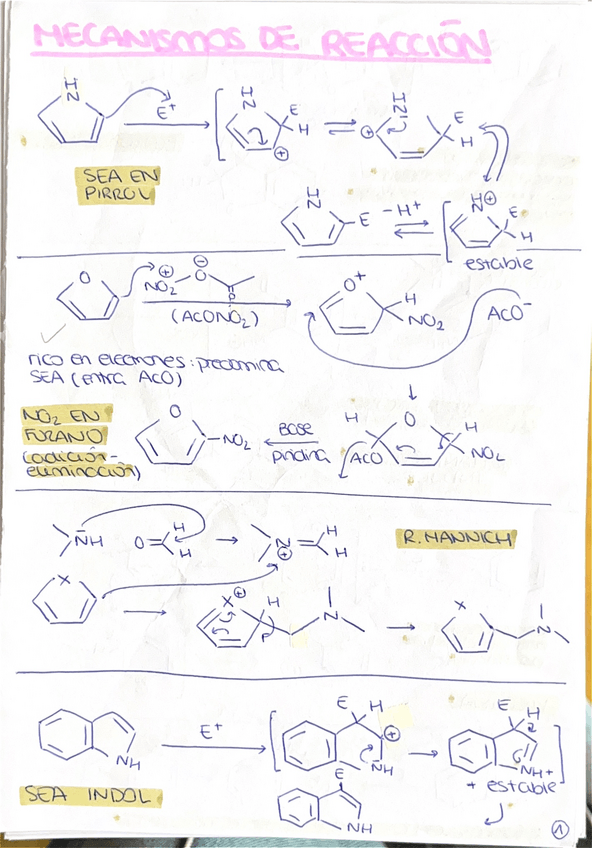 MECANISMOS DE REACCIÓN
H
N
E⁺
H
N
E
H
⊕
H
N
E
H
⊕
SEA EN
PIRROL
H
N
E
- H⁺
H
N⊕
E
H
estable
O
⊕
NO₂
⊖
O
O
(ACONO₂)
O⁺
H
NO₂
ACO⁻
rico en electrones: predomina
SEA (entra ACO)
NO₂ EN
FURANO
(adición-
eliminación)
O
NO₂
BASE
piridina
H
O
H
ACO
NO₂
NH
O
H
H
N
⊕
H
H
R. MANNICH
X
X
⊕
H
N
X
N
NH
E⁺
E
H
⊕
NH
E
H
NH+
+ estable
SEA INDOL
E
NH
1